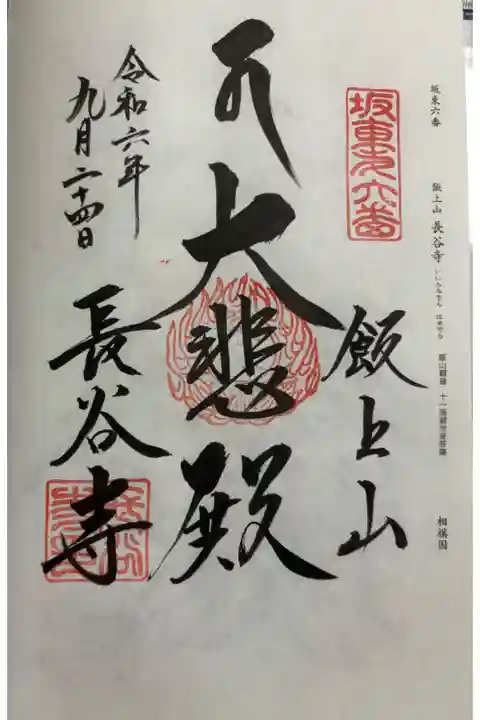 坂東六番
飯上山 長谷寺
いいかみさん はせでら
飯山観音 十一面観世音菩薩
相模国
坂東第六番
飯上山
大悲殿
令和六年
九月二十四日
長谷寺